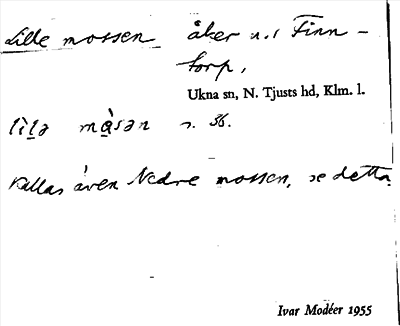 Lille mossen åker n.i Finn-
torp,
Ukna sn, N. Tjusts hd, Klm. l.
lìlə mòsən n. 36.
Kallas även Nedre mossen, se detta.
Ivar Modéer 1955